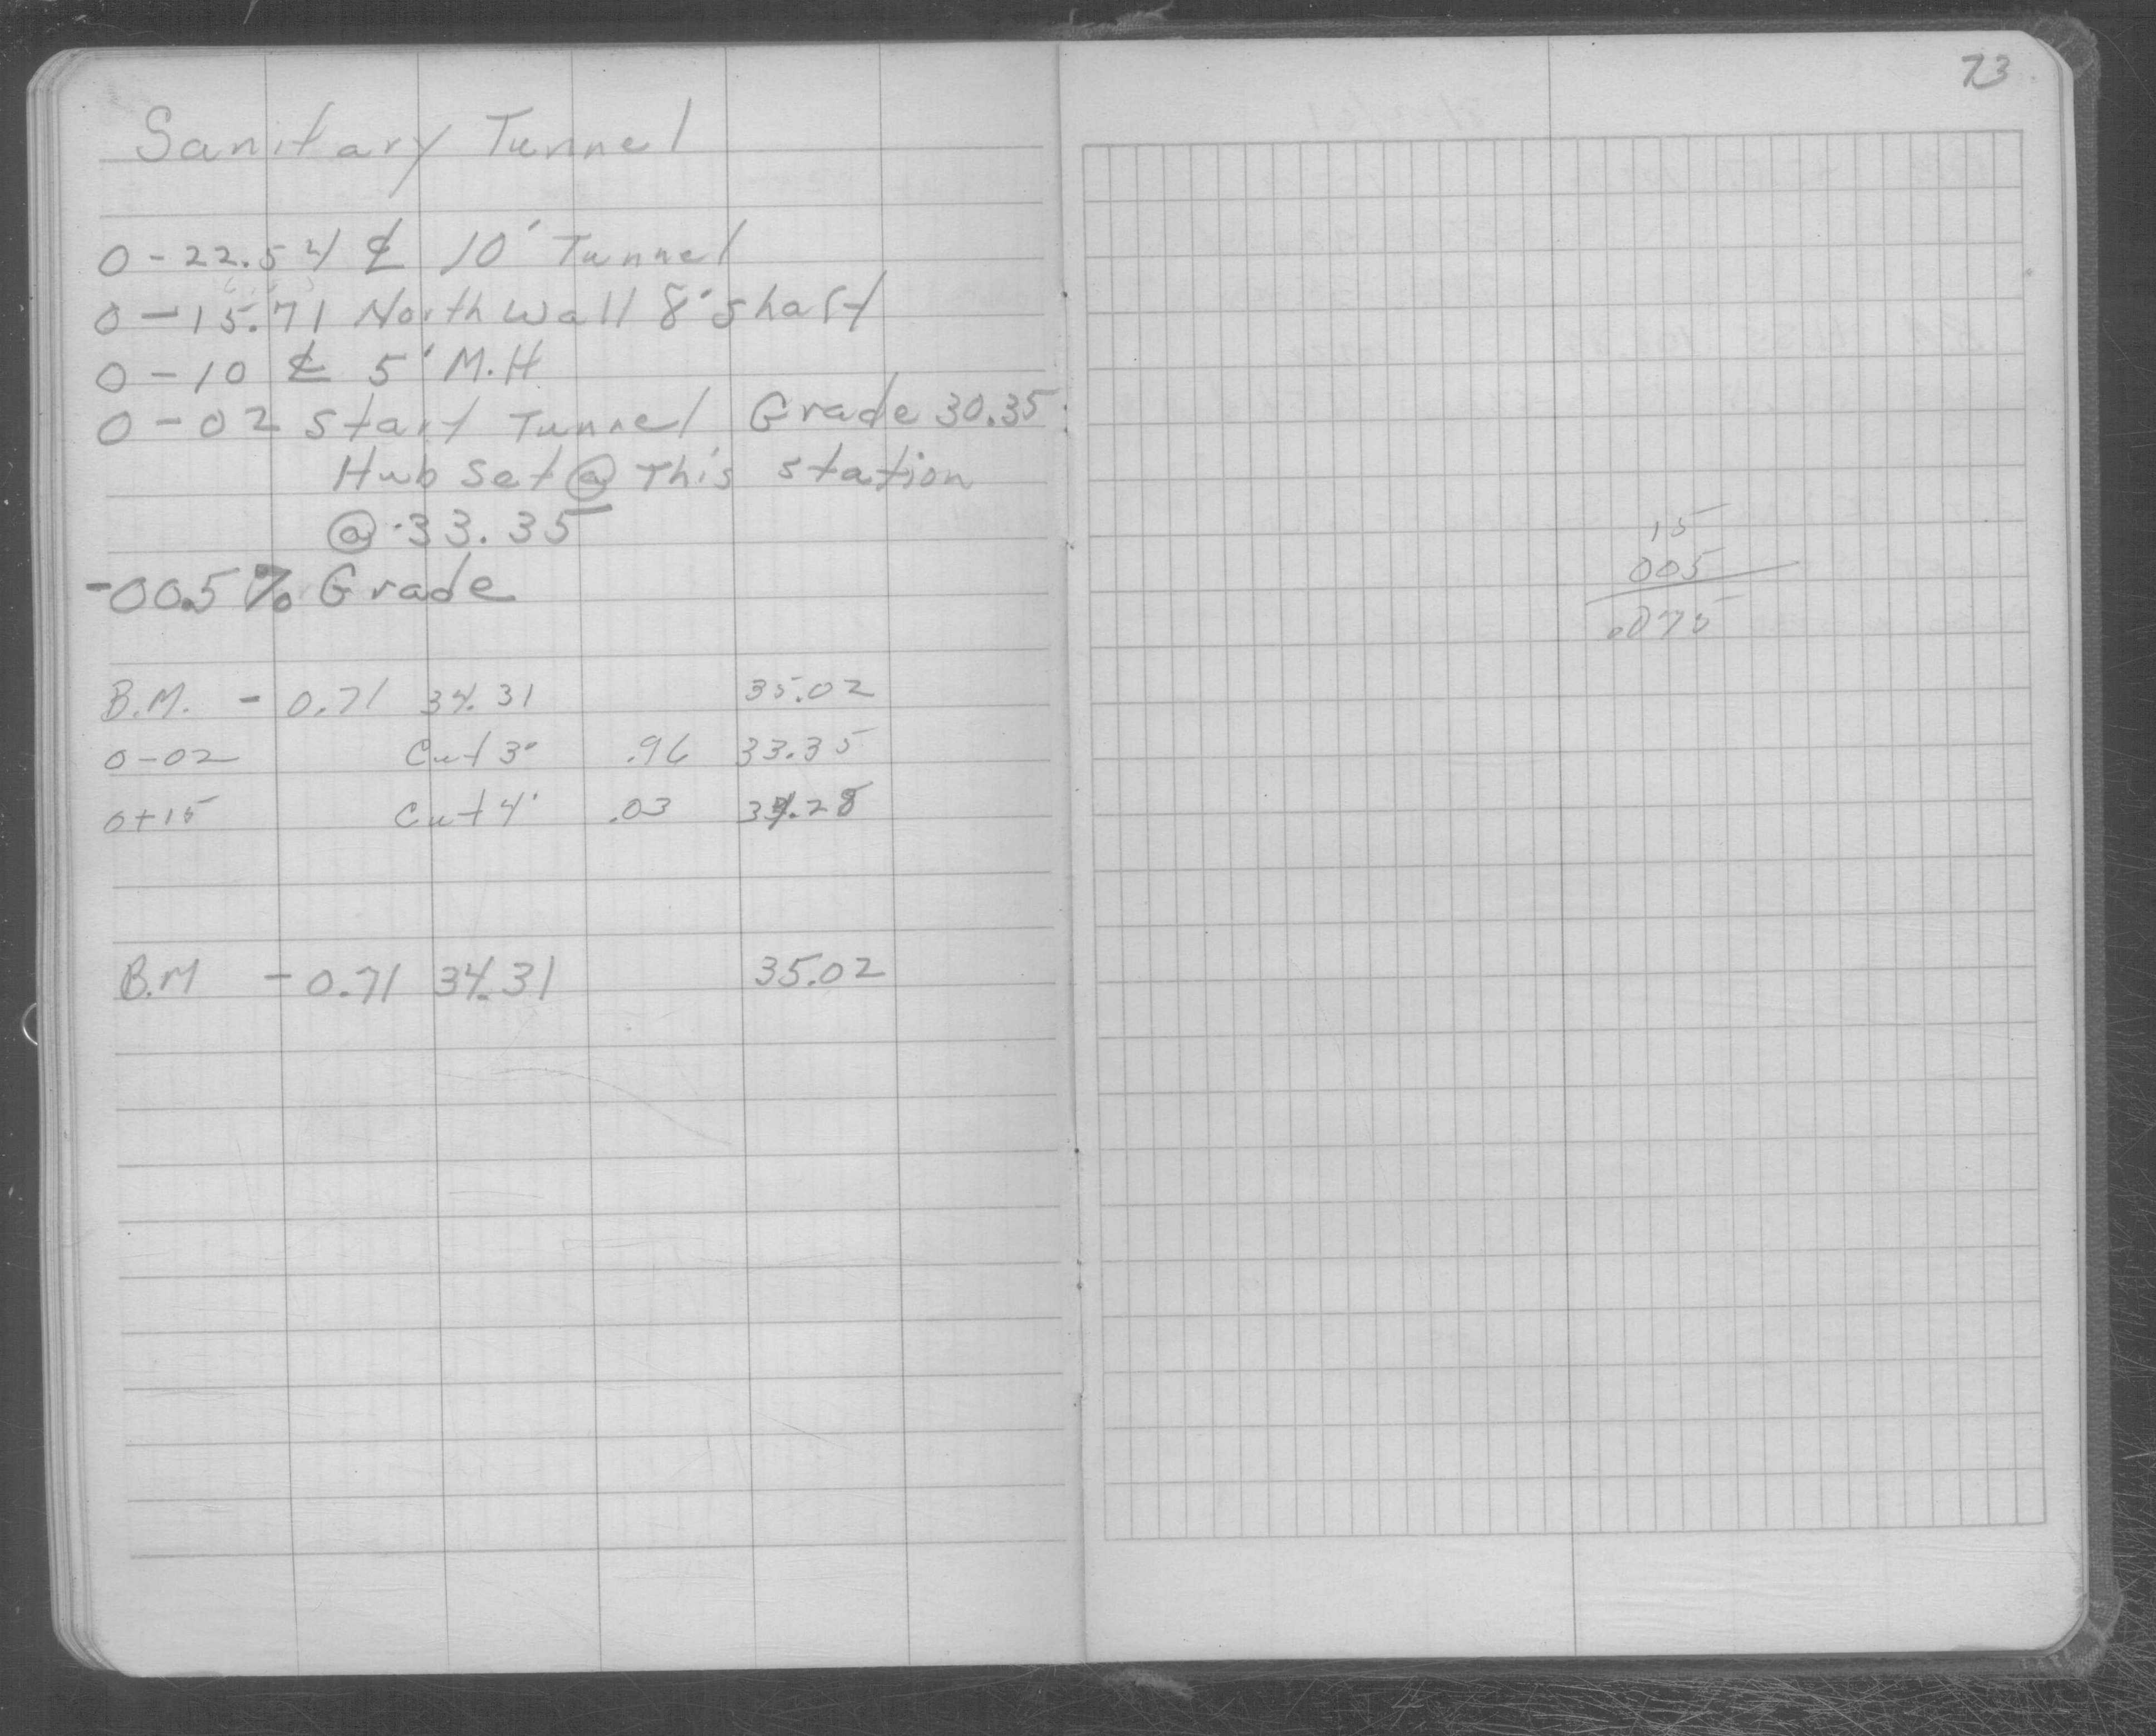 Sanitary Tunnel
0-22.54 ℄ 10' Tunnel
0-15.71 North Wall 8' Shaft
0-10 ℄ 5' M.H.
0-02 Start Tunnel Grade 30.35
Hub Set @ This Station
@ 33.35
-00.5% Grade
B.M. - 0.71 34.31 35.02
0-02 Cut 3' .96 33.35
0+15 Cut 4' .03 34.28
B.M - 0.71 34.31 35.02
73
15
005
.075